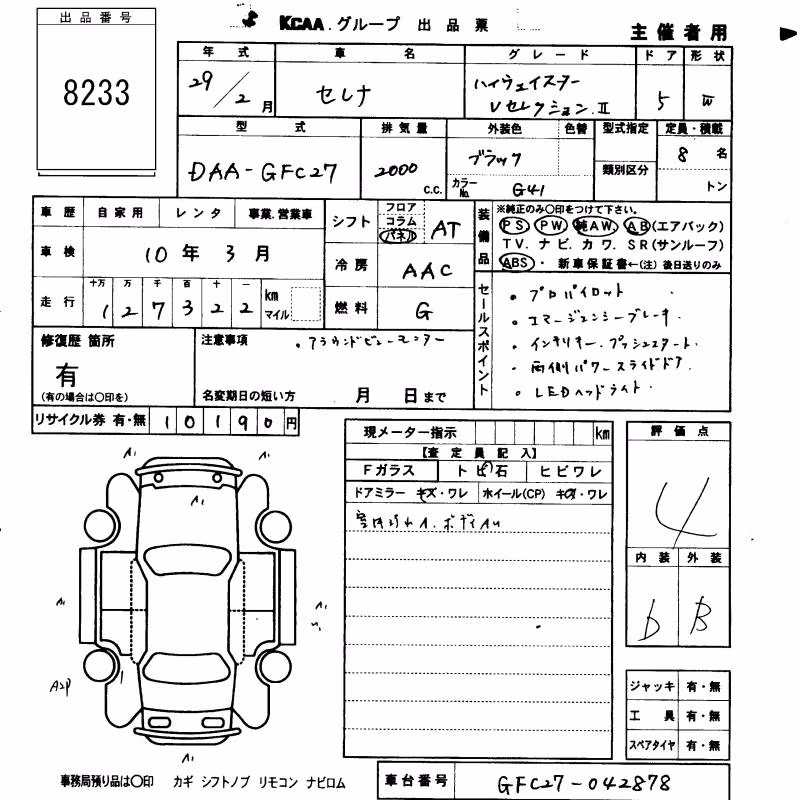 出品番号
8233
KCAA.グループ 出品票
主催者用
年式 車名 グレード ドア 形状
29/2月 セレナ ハイウェイスター
Vセレクション.Ⅱ 5
型式 排気量 外装色 色替 型式指定 定員・積載
DAA-GFC27 2000 c.c. ブラック 8名
カラーNo. G41 類別区分 トン
車歴 自家用 レンタ 事業.営業車
車検 10年3月
走行 十万 万 千 百 十 一
127322 km マイル
シフト フロア コラム パネル AT
冷房 AAC
燃料 G
装備品
※純正のみ○印をつけて下さい。
PS PW 純AW. AB(エアバック)
TV.ナビ.カワ.SR(サンルーフ)
ABS・新車保証書←(注)後日送りのみ
セールスポイント
・プロパイロット
・エマージェンシーブレーキ・
・インテリキー.プッシュスタート.
・両側パワースライドドア.
・LEDヘッドライト.
修復歴 箇所
有
(有の場合は○印を)
注意事項 ・アラウンドビューモニター
名変期日の短い方 月 日まで
リサイクル券 有・無 10190円
現メーター指示 km
【査定員記入】
Fガラス トビ石 ヒビワレ
ドアミラー キズ・ワレ ホイール(CP) キズ・ワレ
評価点
4
内装 外装
D B
A1
A1
A1
A1
A1
A2P
A1
ジャッキ 有・無
工具 有・無
スペアタイヤ 有・無
事務局預り品は○印 カギ シフトノブ リモコン ナビロム
車台番号 GFC27-042878